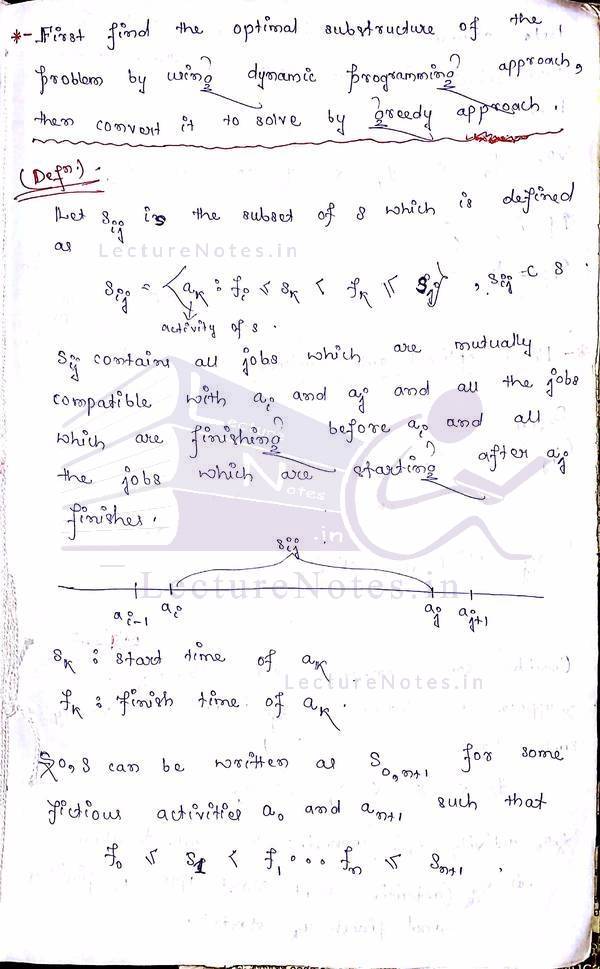 *- First find the optimal substructure of the
problem by using dynamic programming approach,
then convert it to solve by greedy approach.
(Defn:) :-
Let Sij is the subset of S which is defined
as
LectureNotes.in
Sij = {ak : fi ≤ sk < fk ≤ sj}, Sij ⊂ S
activity of S.
Sij contains all jobs which are mutually
compatible with ai and aj and all the jobs
which are finishing before ai and all
the jobs which are starting after aj
finishes.
Lecture Notes .in
Sij
LectureNotes.in
ai-1 ai aj aj+1
sk : start time of ak
LectureNotes.in
fk : finish time of ak.
So, S can be written as S0,n+1 for some
fictious activities a0 and an+1 such that
f0 ≤ s1 < f1 ... fn ≤ sn+1.